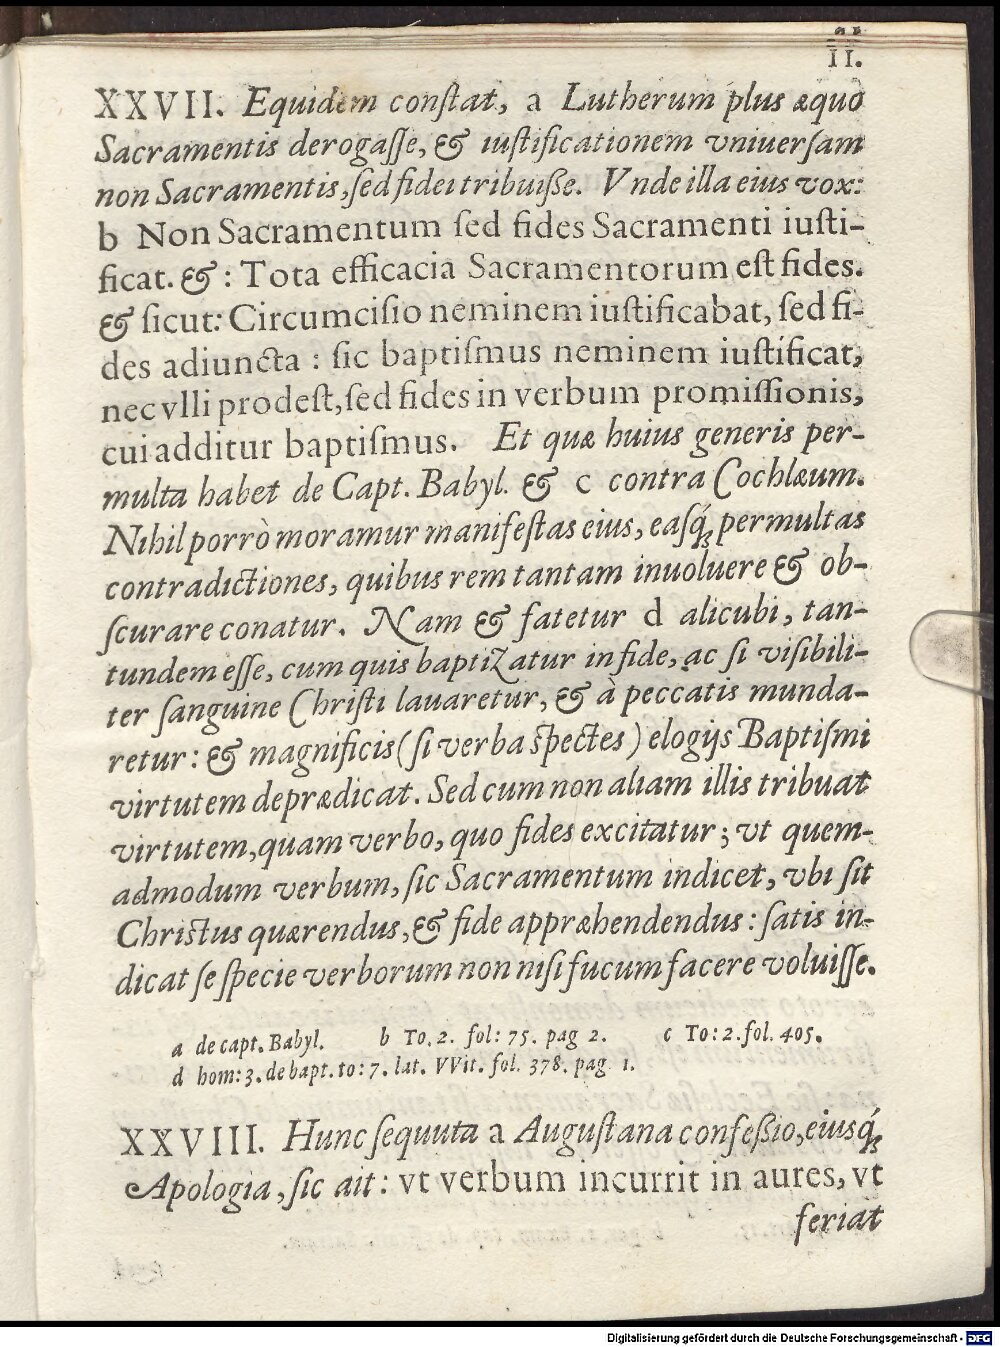 II.
XXVII. Equidem conſtat, a Lutherum plus æquo
Sacramentis derogaſſe, & iuſtificationem vniuerſam
non Sacramentis, ſed fidei tribuiße. Vnde illa eius vox:
b Non Sacramentum ſed fides Sacramenti iuſti-
ficat. & : Tota efficacia Sacramentorum eſt fides.
& ſicut: Circumciſio neminem iuſtificabat, ſed fi-
des adiuncta : ſic baptiſmus neminem iuſtificat,
nec vlli prodeſt, ſed fides in verbum promiſſionis,
cui additur baptiſmus. Et quæ huius generis per-
multa habet de Capt. Babyl. & c contra Cochlæum.
Nihil porrò moramur manifeſtas eius, eaſq́ꝫ permultas
contradictiones, quibus rem tantam inuoluere & ob-
ſcurare conatur. Nam & fatetur d alicubi, tan-
tundem eſſe, cum quis baptizatur in fide, ac ſi viſibili-
ter ſanguine Chriſti lauaretur, & à peccatis munda-
retur: & magnificis (ſi verba ſpectes) elogijs Baptiſmi
virtutem deprædicat. Sed cum non aliam illis tribuat
virtutem, quam verbo, quo fides excitatur; vt quem-
admodum verbum, ſic Sacramentum indicet, vbi ſit
Chriſtus quærendus, & fide appræhendendus: ſatis in-
dicat ſe ſpecie verborum non niſi fucum facere voluiſſe.
a de capt. Babyl. b To. 2. fol: 75. pag 2. c To: 2. fol. 405.
d hom: 3. de bapt. to: 7. lat. VVit. fol. 378. pag 1.
XXVIII. Hunc ſequuta a Auguſtana confeßio, eiusq́ꝫ
Apologia, ſic ait: vt verbum incurrit in aures, vt
feriat
Digitalisierung gefördert durch die Deutsche Forschungsgemeinschaft - DFG